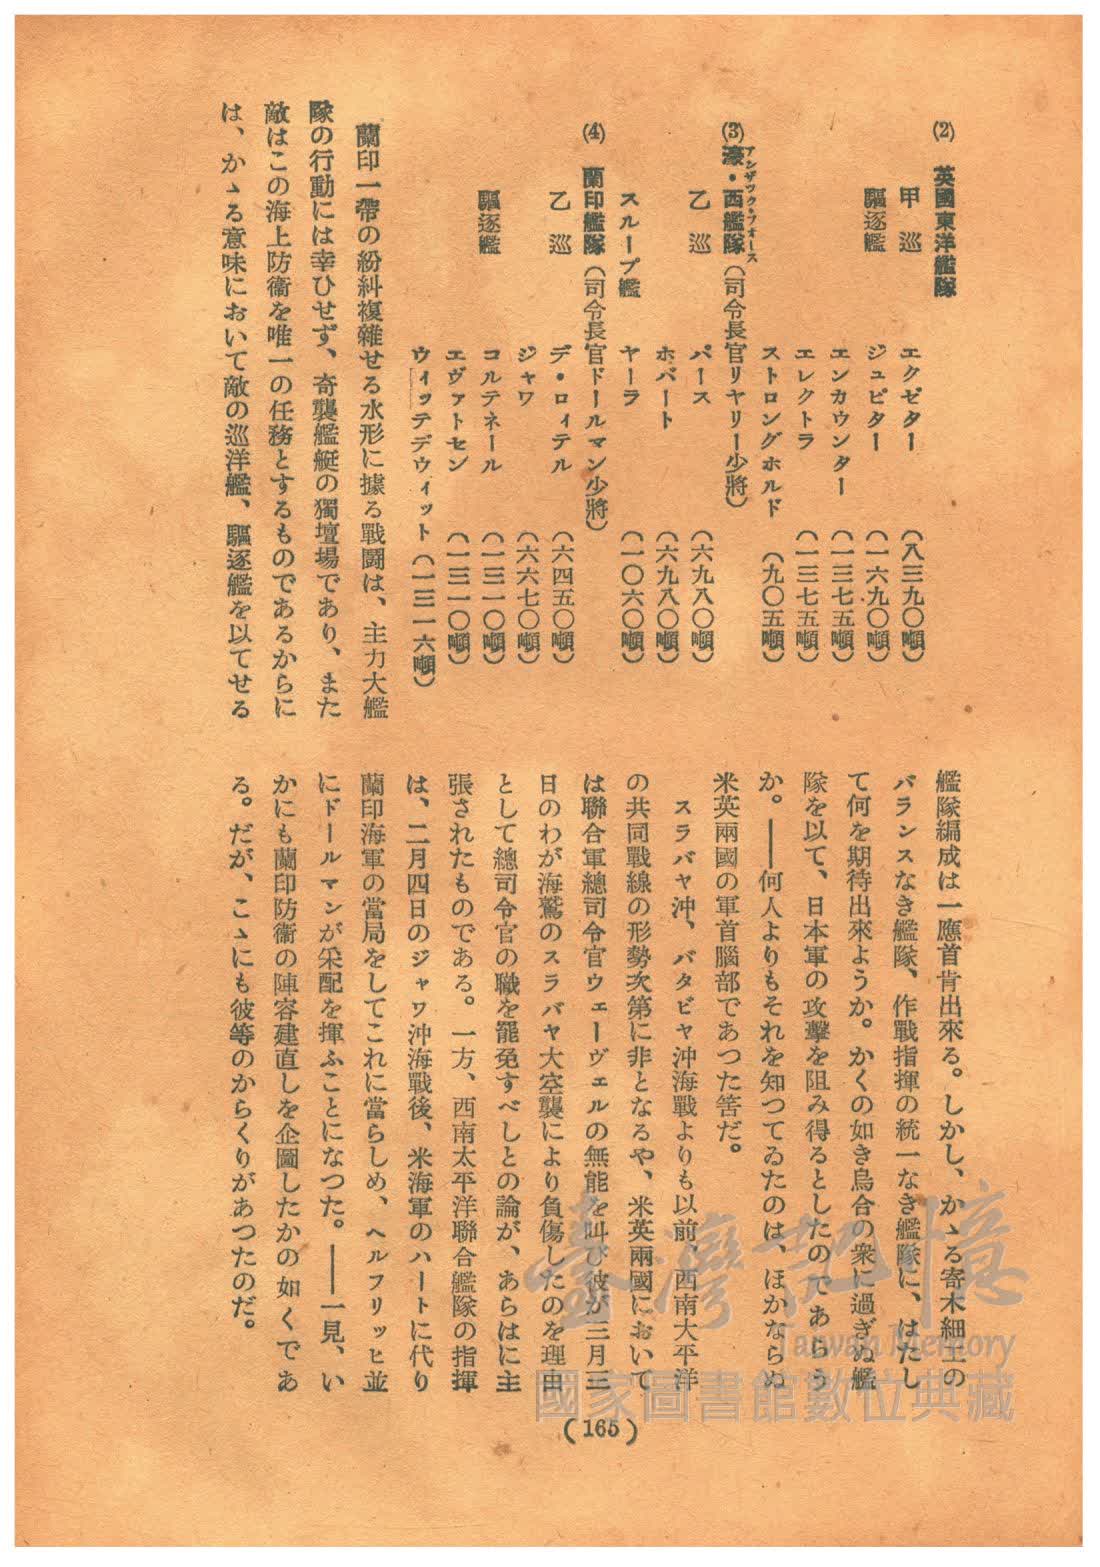 (2) 英國東洋艦隊
甲 巡 エクゼター (八三九〇噸)
驅逐艦 ジュピター (一六九〇噸)
エンカウンター (一三七五噸)
エレクトラ (一三七五噸)
ストロングホルド (九〇五噸)
アンザツク・フオース
(3) 濠・西艦隊(司令長官リヤリー少將)
乙 巡 パース (六九八〇噸)
ホバート (六九八〇噸)
スループ艦 ヤーラ (一〇六〇噸)
(4) 蘭印艦隊(司令長官ドールマン少將)
乙 巡 デ・ロイテル (六四五〇噸)
ジャワ (六六七〇噸)
驅逐艦 コルテネール (一三一〇噸)
エヴァトセン (一三一〇噸)
ウィッテデウィット (一三一六噸)
蘭印一帶の紛糾複雜せる水形に據る戰鬪は、主力大艦
隊の行動には幸ひせず、奇襲艦艇の獨壇場であり、また
敵はこの海上防衞を唯一の任務とするものであるからに
は、かゝる意味において敵の巡洋艦、驅逐艦を以てせる
艦隊編成は一應首肯出來る。しかし、かゝる寄木細工の
バランスなき艦隊、作戰指揮の統一なき艦隊に、はたし
て何を期待出來ようか。かくの如き烏合の衆に過ぎぬ艦
隊を以て、日本軍の攻擊を阻み得るとしたのであらう
か。――何人よりもそれを知つてゐたのは、ほかならぬ
米英兩國の軍首腦部であつた筈だ。
スラバヤ沖、バタビヤ沖海戰よりも以前、西南太平洋
の共同戰線の形勢次第に非となるや、米英兩國において
は聯合軍總司令官ウェーヴェルの無能を叫び彼が三月三
日のわが海鷲のスラバヤ大空襲により負傷したのを理由
として總司令官の職を罷免すべしとの論が、あらはに主
張されたものである。一方、西南太平洋聯合艦隊の指揮
は、二月四日のジャワ沖海戰後、米海軍のハートに代り
蘭印海軍の當局をしてこれに當らしめ、ヘルフリッヒ並
にドールマンが采配を揮ふことになつた。――一見、い
かにも蘭印防衞の陣容建直しを企圖したかの如くであ
る。だが、こゝにも彼等のからくりがあつたのだ。
(165)
臺灣記憶
Taiwan Memory
國家圖書館數位典藏